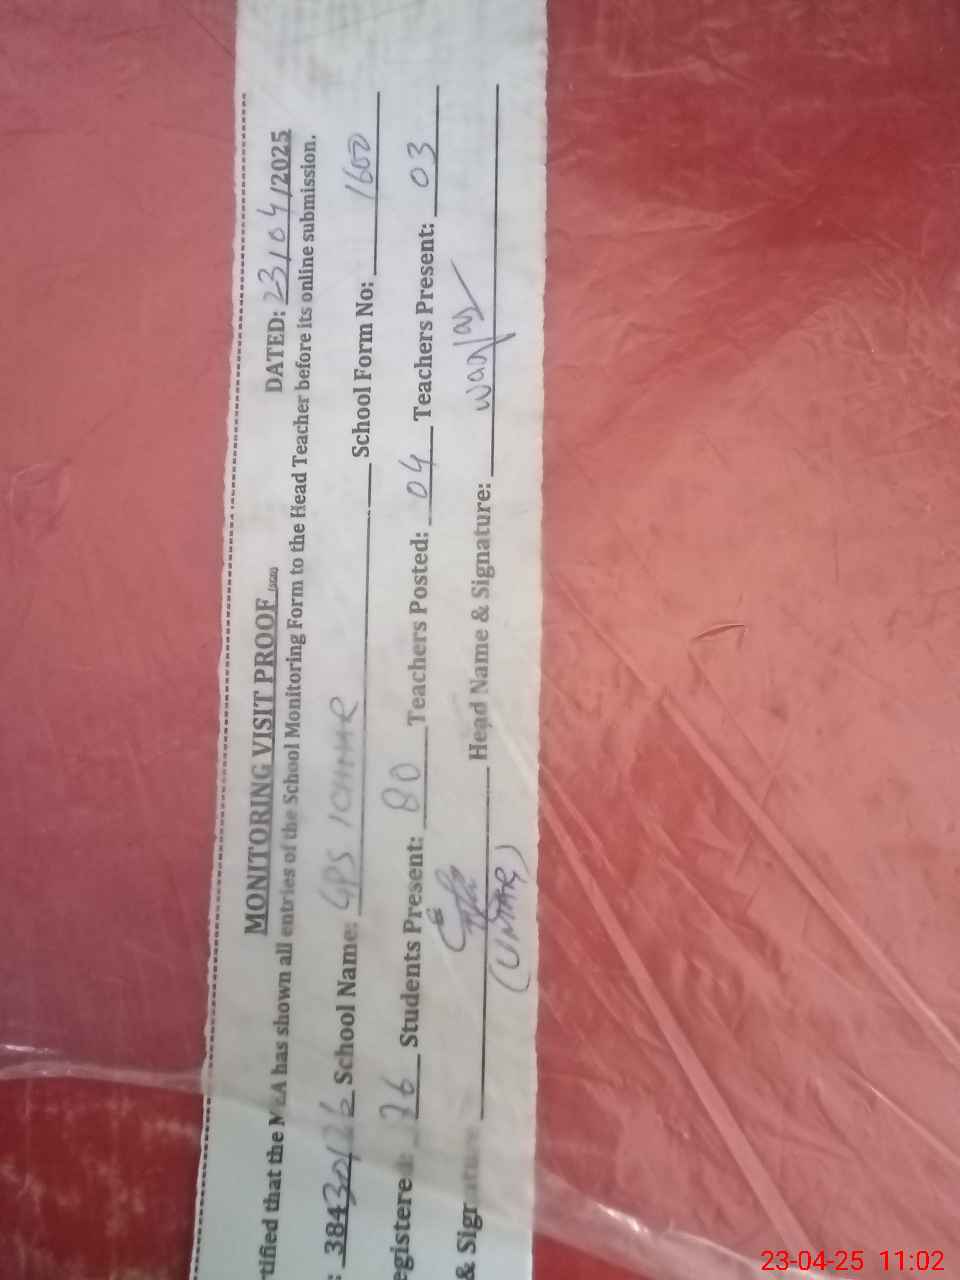 MONITORING VISIT PROOF DATED: 23/04/2025
rtified that the MEA has shown all entries of the School Monitoring Form to the Head Teacher before its online submission.
: 384301 School Name: GPS School Form No: 1600
egistered: 36 Students Present: 80 Teachers Posted: 04 Teachers Present: 03
& Signature: (UMAR) Head Name & Signature:
23-04-25 11:02